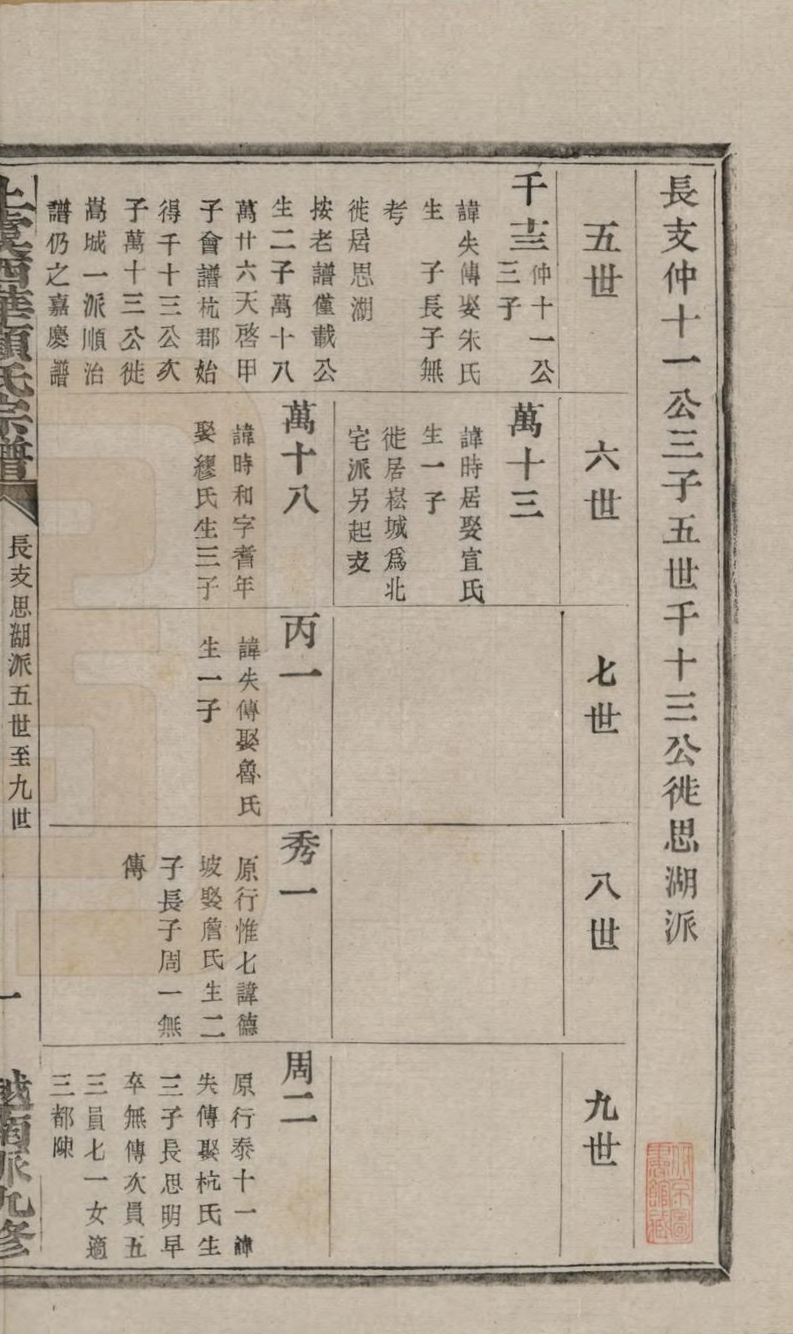 長支仲十一公三子五世千十三公徙思湖派
五世
千十三
仲十一公
三子
諱失傳娶朱氏
生　子長子無
考
徙居思湖
按老譜僅載公
生二子萬十八
萬廿六天啓甲
子會譜杭郡始
得千十三公次
子萬十三公徙
嵩城一派順治
譜仍之嘉慶譜
六世
萬十三
諱時居娶宜氏
生一子
徙居崧城爲北
宅派另起支
萬十八
諱時和字耆年
娶繆氏生三子
七世
丙一
諱失傳娶魯氏
生一子
八世
秀一
原行惟七諱德
坡娶詹氏生二
子長子周一無
傳
九世
周二
原行泰十一諱
失傳娶杭氏生
三子長思明早
卒無傳次員五
三員七一女適
三都陳
長支思湖派五世至九世
一